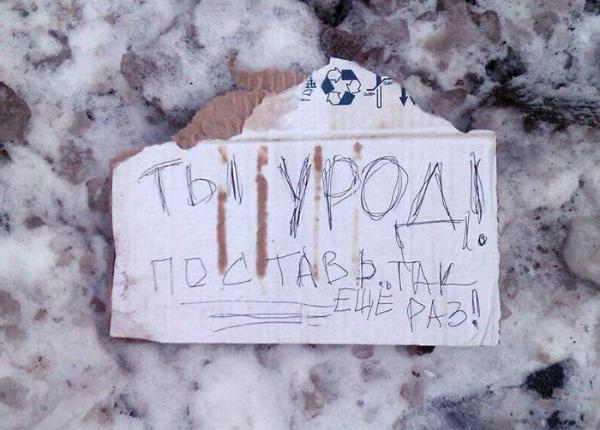 ТЫ УРОД!
ПОСТАВЬ ТАК
ЕЩЕ РАЗ!